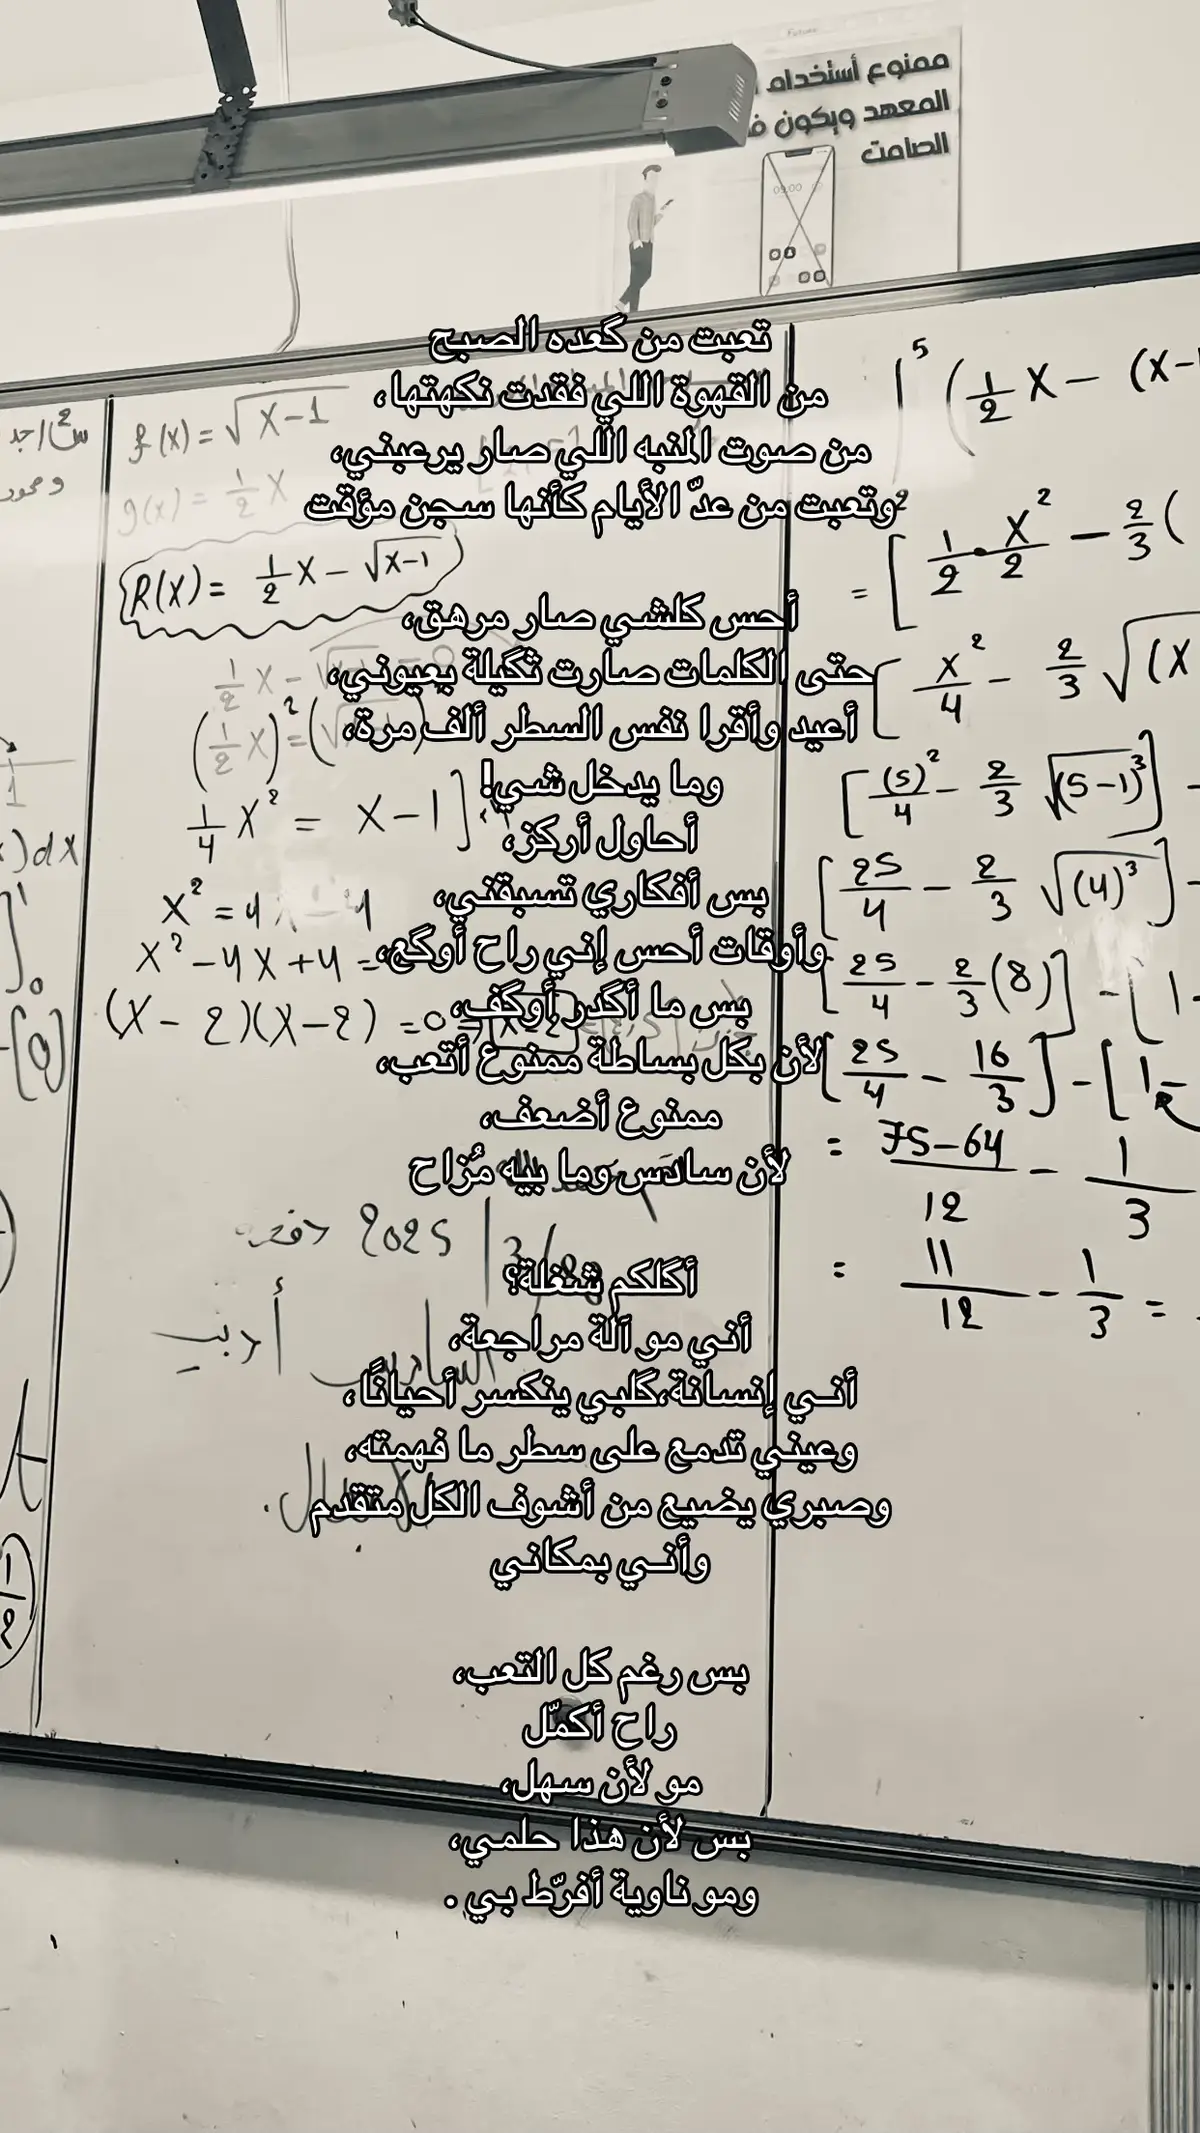 ممنوع أستخدام
المعهد ويكون
الصامت
09:00
تعبت من گعده الصبح
من القهوة اللي فقدت نكهتها،
من صوت المنبه اللي صار يرعبني،
وتعبت من عدّ الأيام كأنها سجن مؤقت
أحس كلشي صار مرهق،
حتى الكلمات صارت ثگيلة بعيوني،
أعيد وأقرا نفس السطر ألف مرة،
وما يدخل شي!
أحاول أركز،
بس أفكاري تسبقني،
وأوقات أحس إني راح أوگع،
بس ما أگدر أوگف،
لأن بكل بساطة ممنوع أتعب،
ممنوع أضعف،
لأن سادس وما بيه مُزاح
أگلكم شغلة؟
أني مو آلة مراجعة،
أني إنسانة،گلبي ينكسر أحيانًا،
وعيني تدمع على سطر ما فهمته،
وصبري يضيع من أشوف الكل متقدم
وأني بمكاني
بس رغم كل التعب،
راح أكمّل
مو لأن سهل،
بس لأن هذا حلمي،
ومو ناوية أفرّط بي .
f(x) = √x-1
g(x) = 1/2 x
R(x) = 1/2 x - √x-1
(1/2 x)² = (
1/4 x² = x-1]
x² = 4x - 4
x² - 4x + 4 =
(x-2)(x-2) = 0
2025
السادس أدبي
) dx
5 (1/2 x - (x-1
= [1/2 · x²/2 - 2/3 (
[x²/4 - 2/3 √(x
[(5)²/4 - 2/3 √(5-1)³] -
[25/4 - 2/3 √(4)³] -
[25/4 - 2/3 (8)] - [1-
[25/4 - 16/3] - [1-
= 75-64/12 - 1/3
= 11/12 - 1/3 =